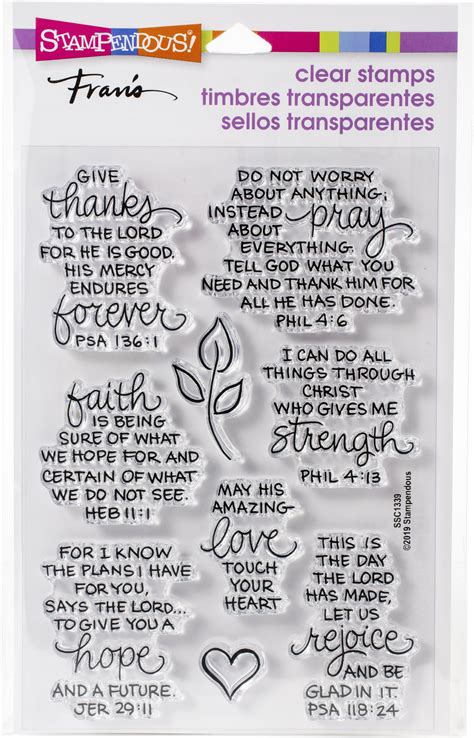 STAMPENDOUS!
Fran's
clear stamps
timbres transparentes
sellos transparentes
GIVE
thanks
TO THE LORD
FOR HE IS GOOD.
HIS MERCY
ENDURES
forever
PSA 136:1
DO NOT WORRY
ABOUT ANYTHING;
INSTEAD pray
ABOUT
EVERYTHING.
TELL GOD WHAT YOU
NEED AND THANK HIM FOR
ALL HE HAS DONE.
PHIL 4:6
faith
IS BEING
SURE OF WHAT
WE HOPE FOR AND
CERTAIN OF WHAT
WE DO NOT SEE.
HEB 11:1
I CAN DO ALL
THINGS THROUGH
CHRIST
WHO GIVES ME
strength
PHIL 4:13
MAY HIS
AMAZING
love
TOUCH
YOUR
HEART
FOR I KNOW
THE PLANS I HAVE
FOR YOU,
SAYS THE LORD...
TO GIVE YOU A
hope
AND A FUTURE.
JER 29:11
THIS IS
THE DAY
THE LORD
HAS MADE,
LET US
rejoice
AND BE
GLAD IN IT.
PSA 118:24
SSC1339
©2019 Stampendous